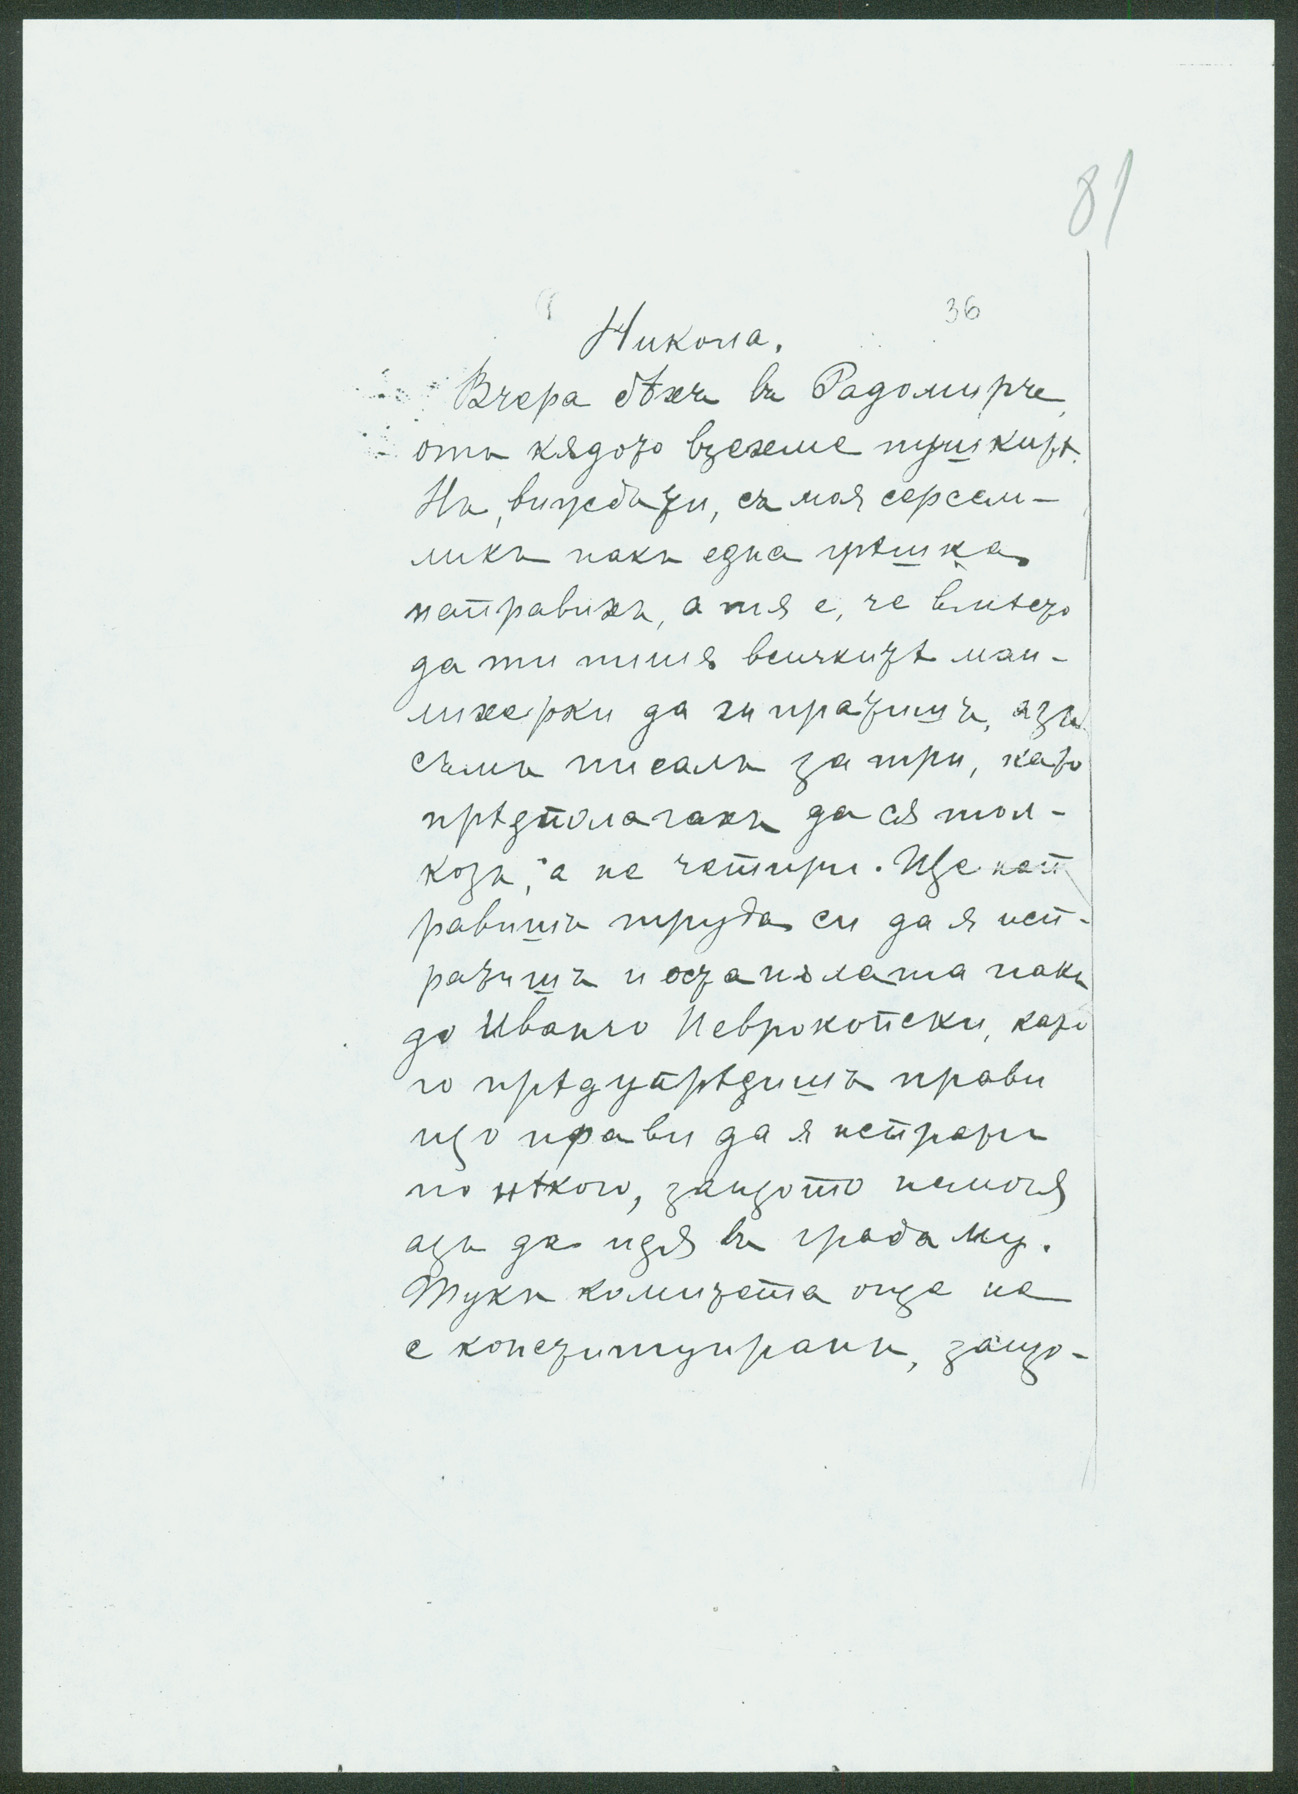 81
36
Никола.
Вчера бѣхъ въ Радомирче,
отъ кядото взехме пушкитѣ.
Нъ, виждаш, съ моя серсем-
ликъ пакъ една грѣшка
направихъ, а тя е, че вмѣсто
да ти пиша всичкитѣ ман-
лихерки да ги пратишъ, азъ
съмъ писалъ за три, като
прѣдполагахъ да ся тол-
козъ, а не четири. Ще нап
равишъ труда си да я исп-
ратишъ и останалата пакъ
до Иванчо Неврокопски, като
го прѣдупрѣдишъ прави
що прави да я испрати
по нѣкого, защото немогя
азъ да идя въ града му.
Тукъ комитета още не
е конституиранъ, защо-